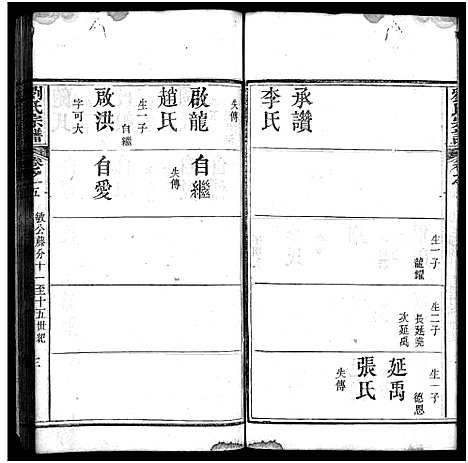 承讚
李氏
生一子
龍躍
生二子
長延堯
次延禹
生一子
德恩
延禹
張氏
失傳
失傳
啟龍 自繼
失傳
趙氏
生一子
自繼
啟洪 自愛
字可大
劉氏宗譜
卷之十五
敏公藤分十一至十五世紀
三